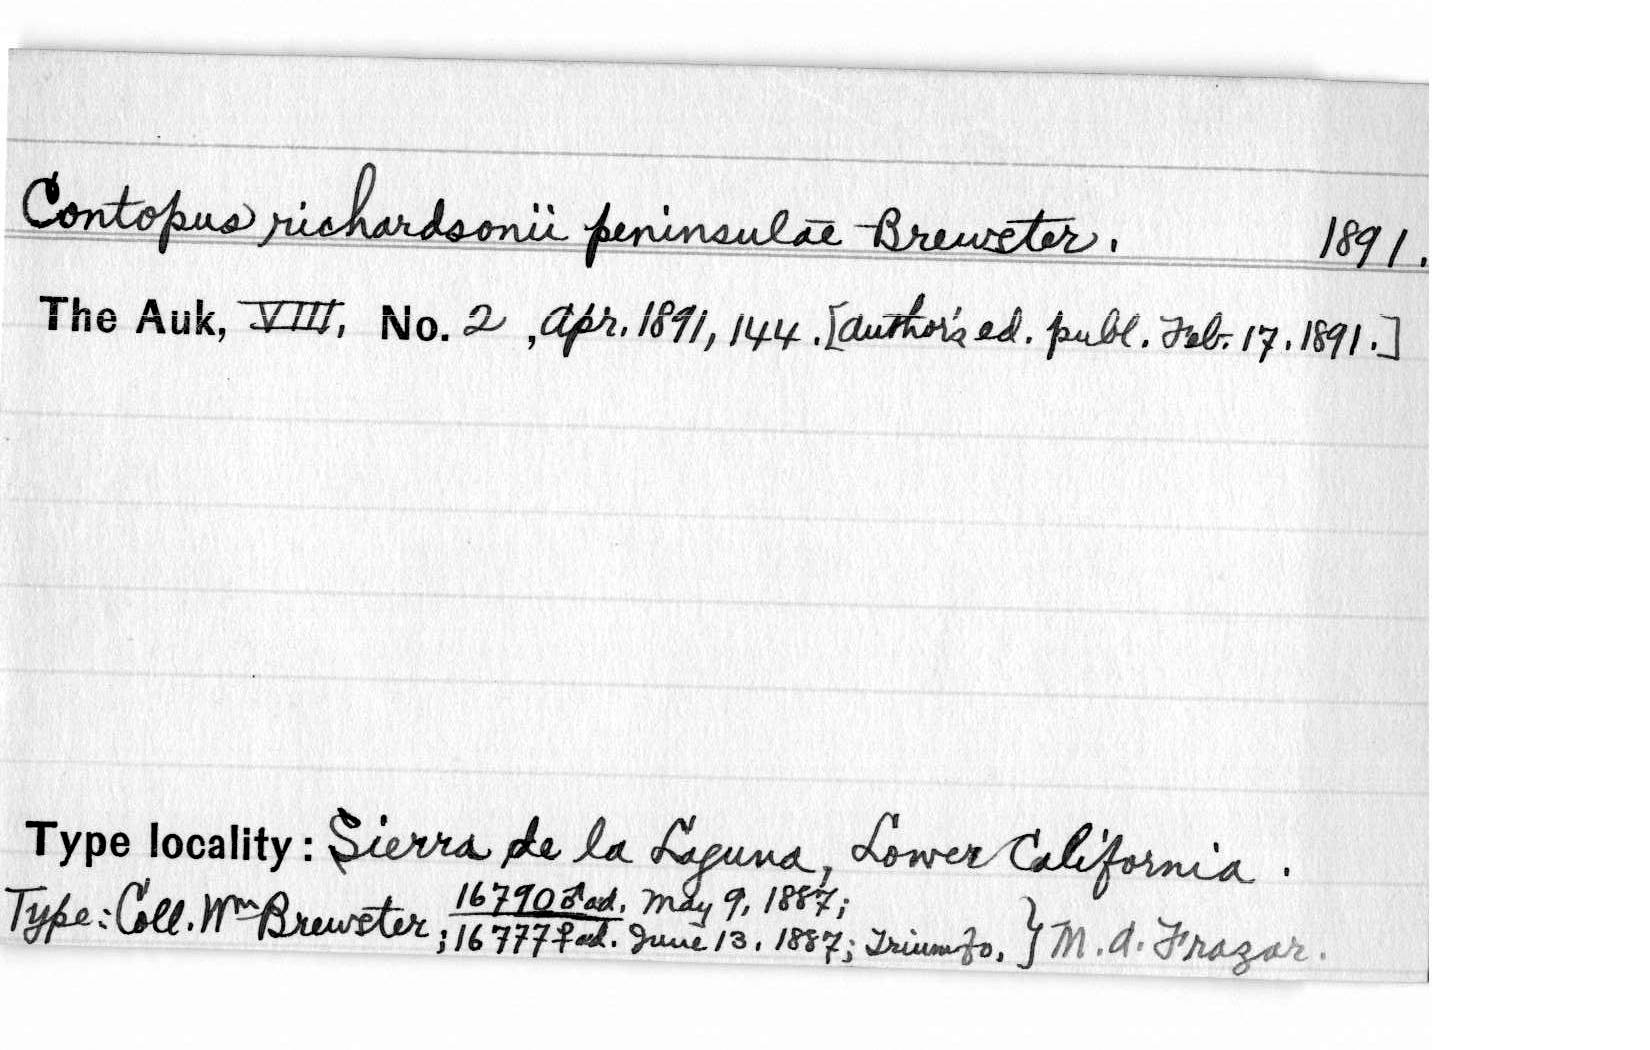 Contopus richardsonii peninsulae Brewster. 1891.
The Auk, VIII, No. 2, Apr. 1891, 144. [Author's ed. publ. Feb. 17. 1891.]
Type locality: Sierra de la Laguna, Lower California.
Type: Coll. Wm Brewster; 16790 ♂ ad. May 9, 1887;
; 16777 ♀ ad. June 13. 1887; Triumfo. } M. A. Frazar.